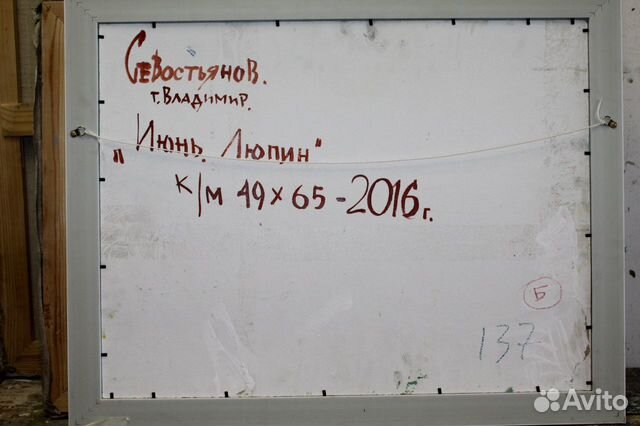 Севостьянов.
г. Владимир.
„Июнь. Люпин"
к/м 49 x 65 - 2016 г.
Б
137
Avito